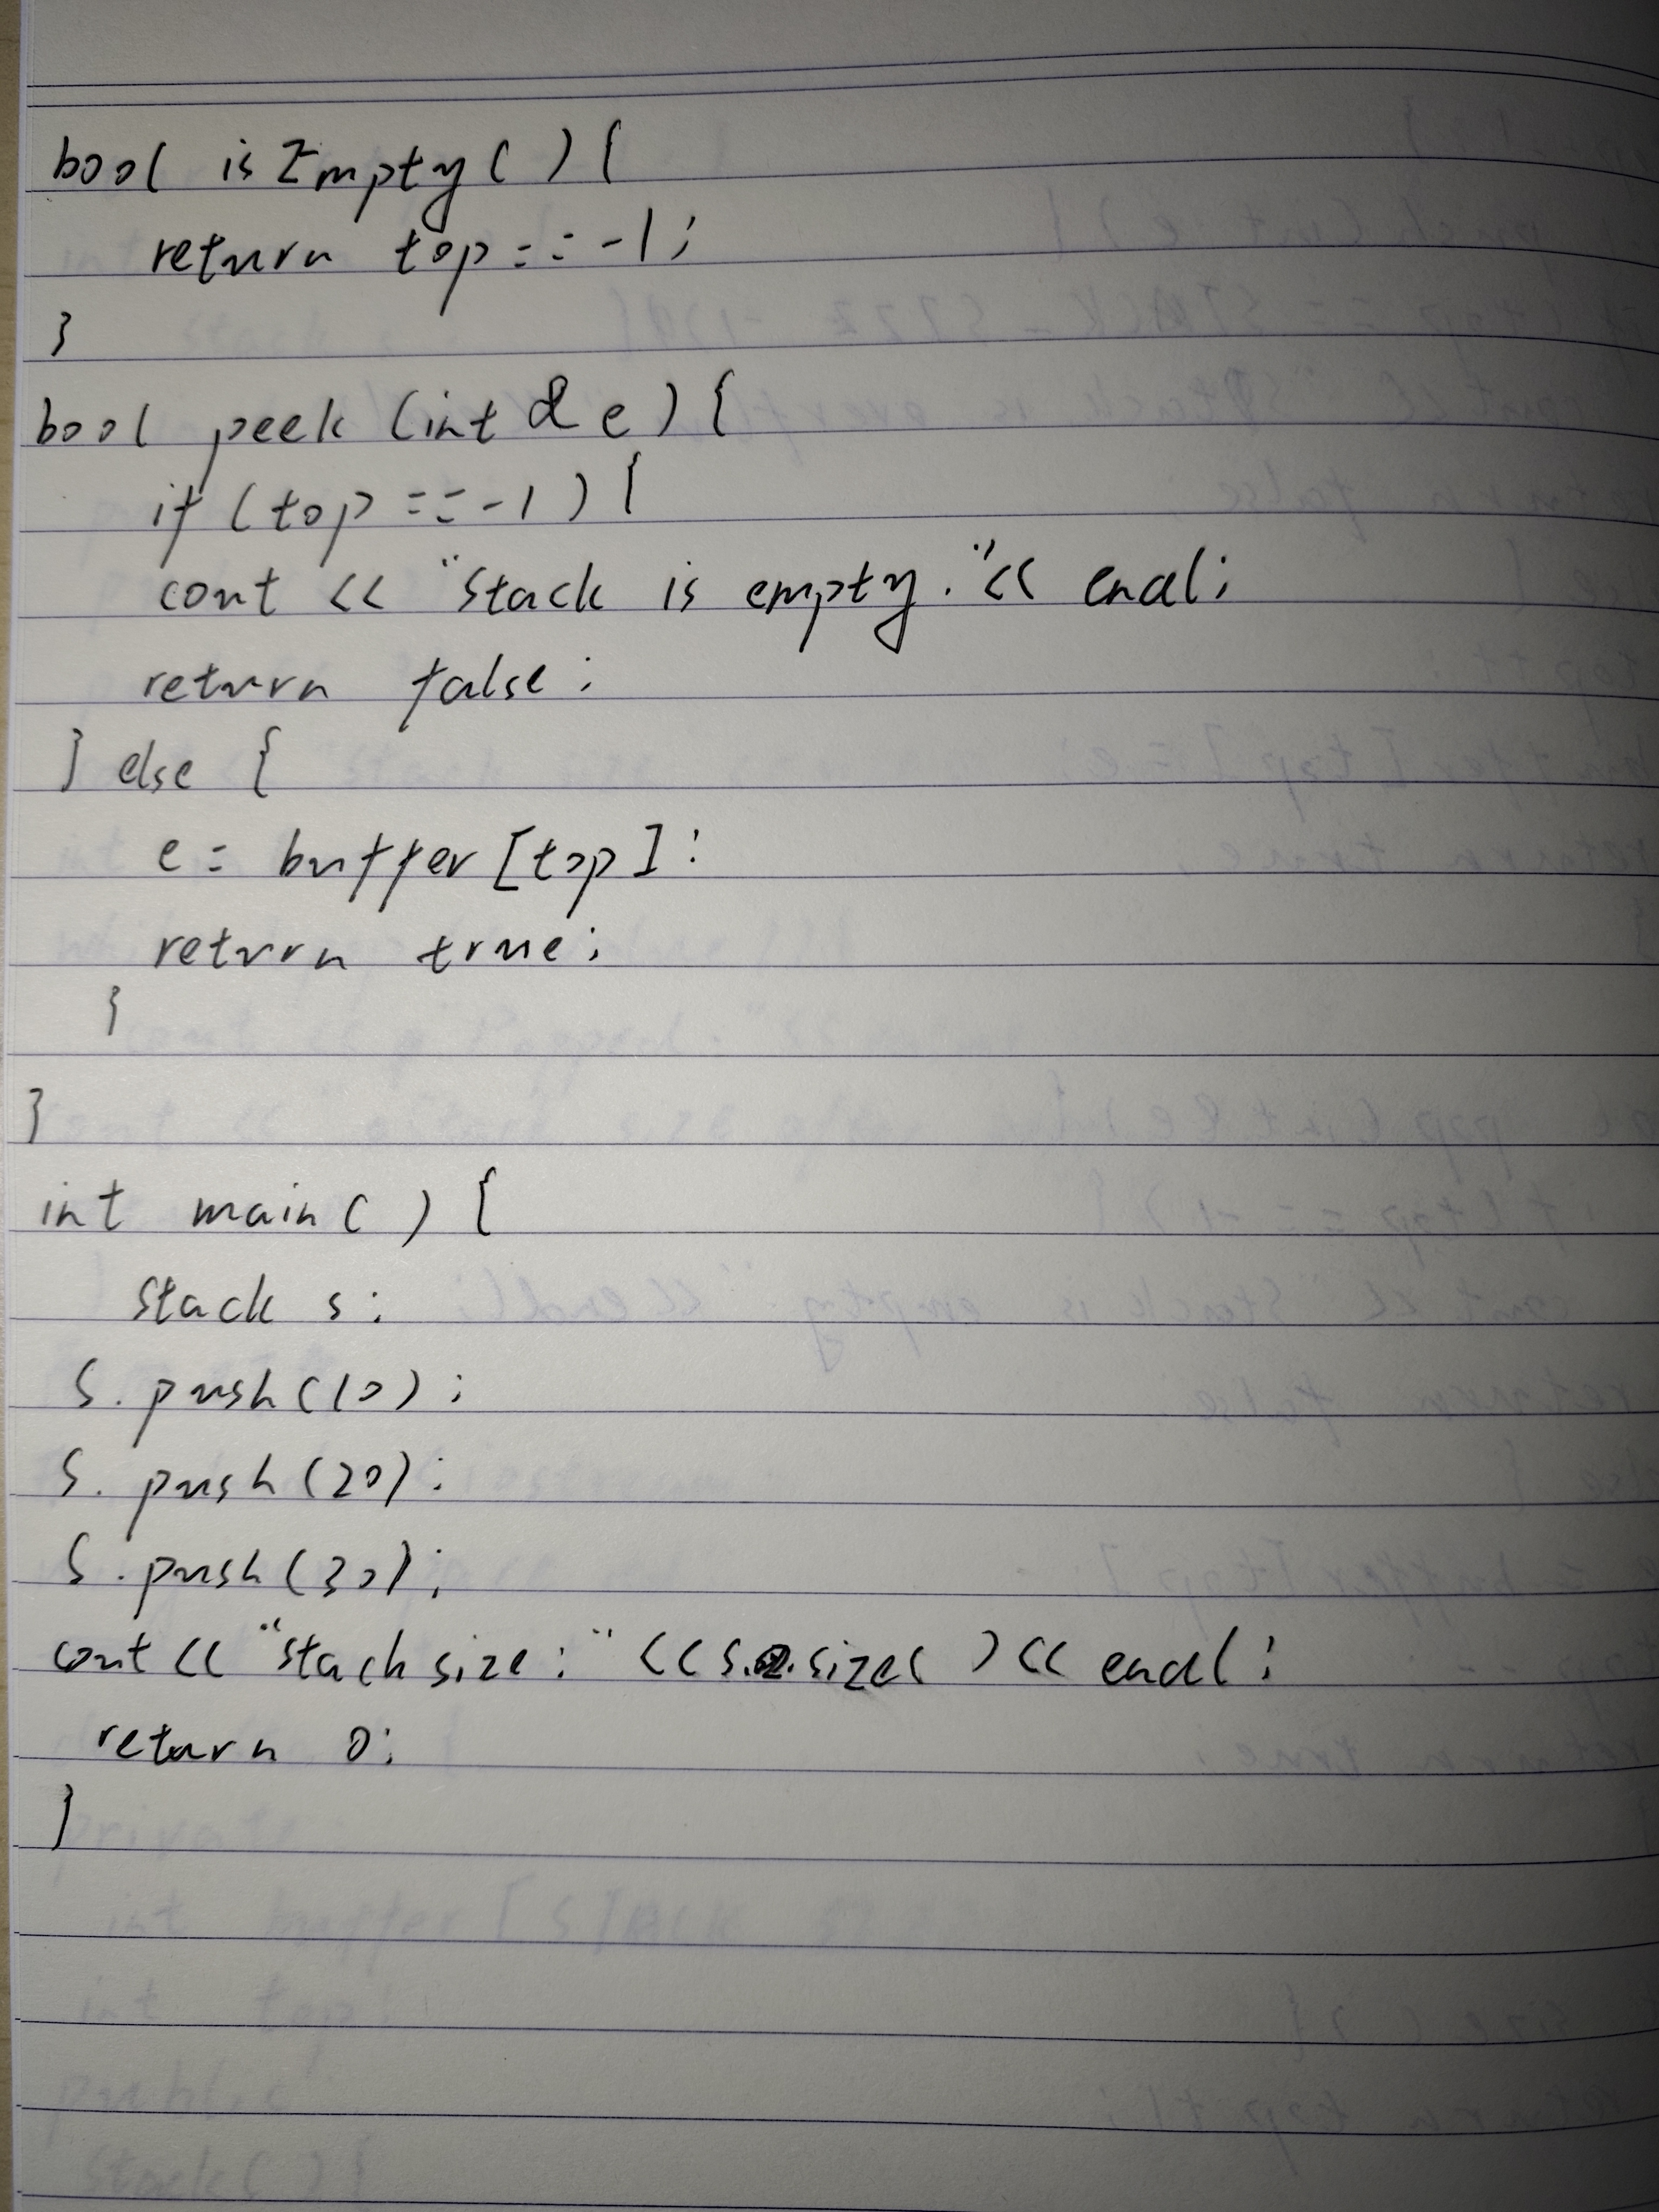 bool isEmpty( ) {
return top == -1;
}
bool peek (int & e) {
if (top == -1) {
cout << "Stack is empty." << endl;
return false;
} else {
e = buffer [top];
return true;
}
}
int main( ) {
Stack s;
S. push(10);
S. push(20);
S. push(30);
cout << "Stack size: " << s.size( ) << endl;
return 0;
}